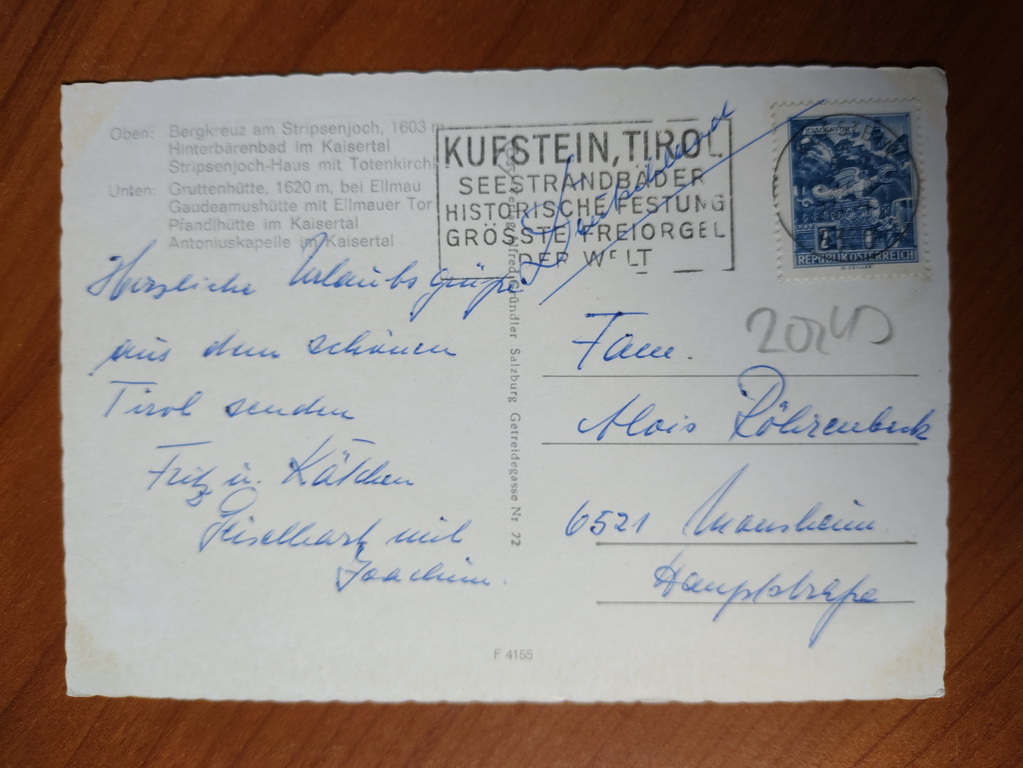 Oben: Bergkreuz am Stripsenjoch, 1603 m
Hinterbärenbad im Kaisertal
Stripsenjoch-Haus mit Totenkirchl
Unten: Gruttenhütte, 1620 m, bei Ellmau
Gaudeamushütte mit Ellmauer Tor
Pfandlhütte im Kaisertal
Antoniuskapelle im Kaisertal
KUFSTEIN, TIROL
SEESTRANDBÄDER
HISTORISCHE FESTUNG
GRÖSSTE FREIORGEL
DER WELT
REPUBLIK ÖSTERREICH
Herzliche Urlaubsgrüße
aus dem schönen
Tirol senden
Fritz u. Kätchen
mit
Joachim.
Gründler Salzburg Getreidegasse Nr 72
Deutschland
Fam.
Alois Röhrenbeck
6521 Monsheim
Hauptstraße
F 4155